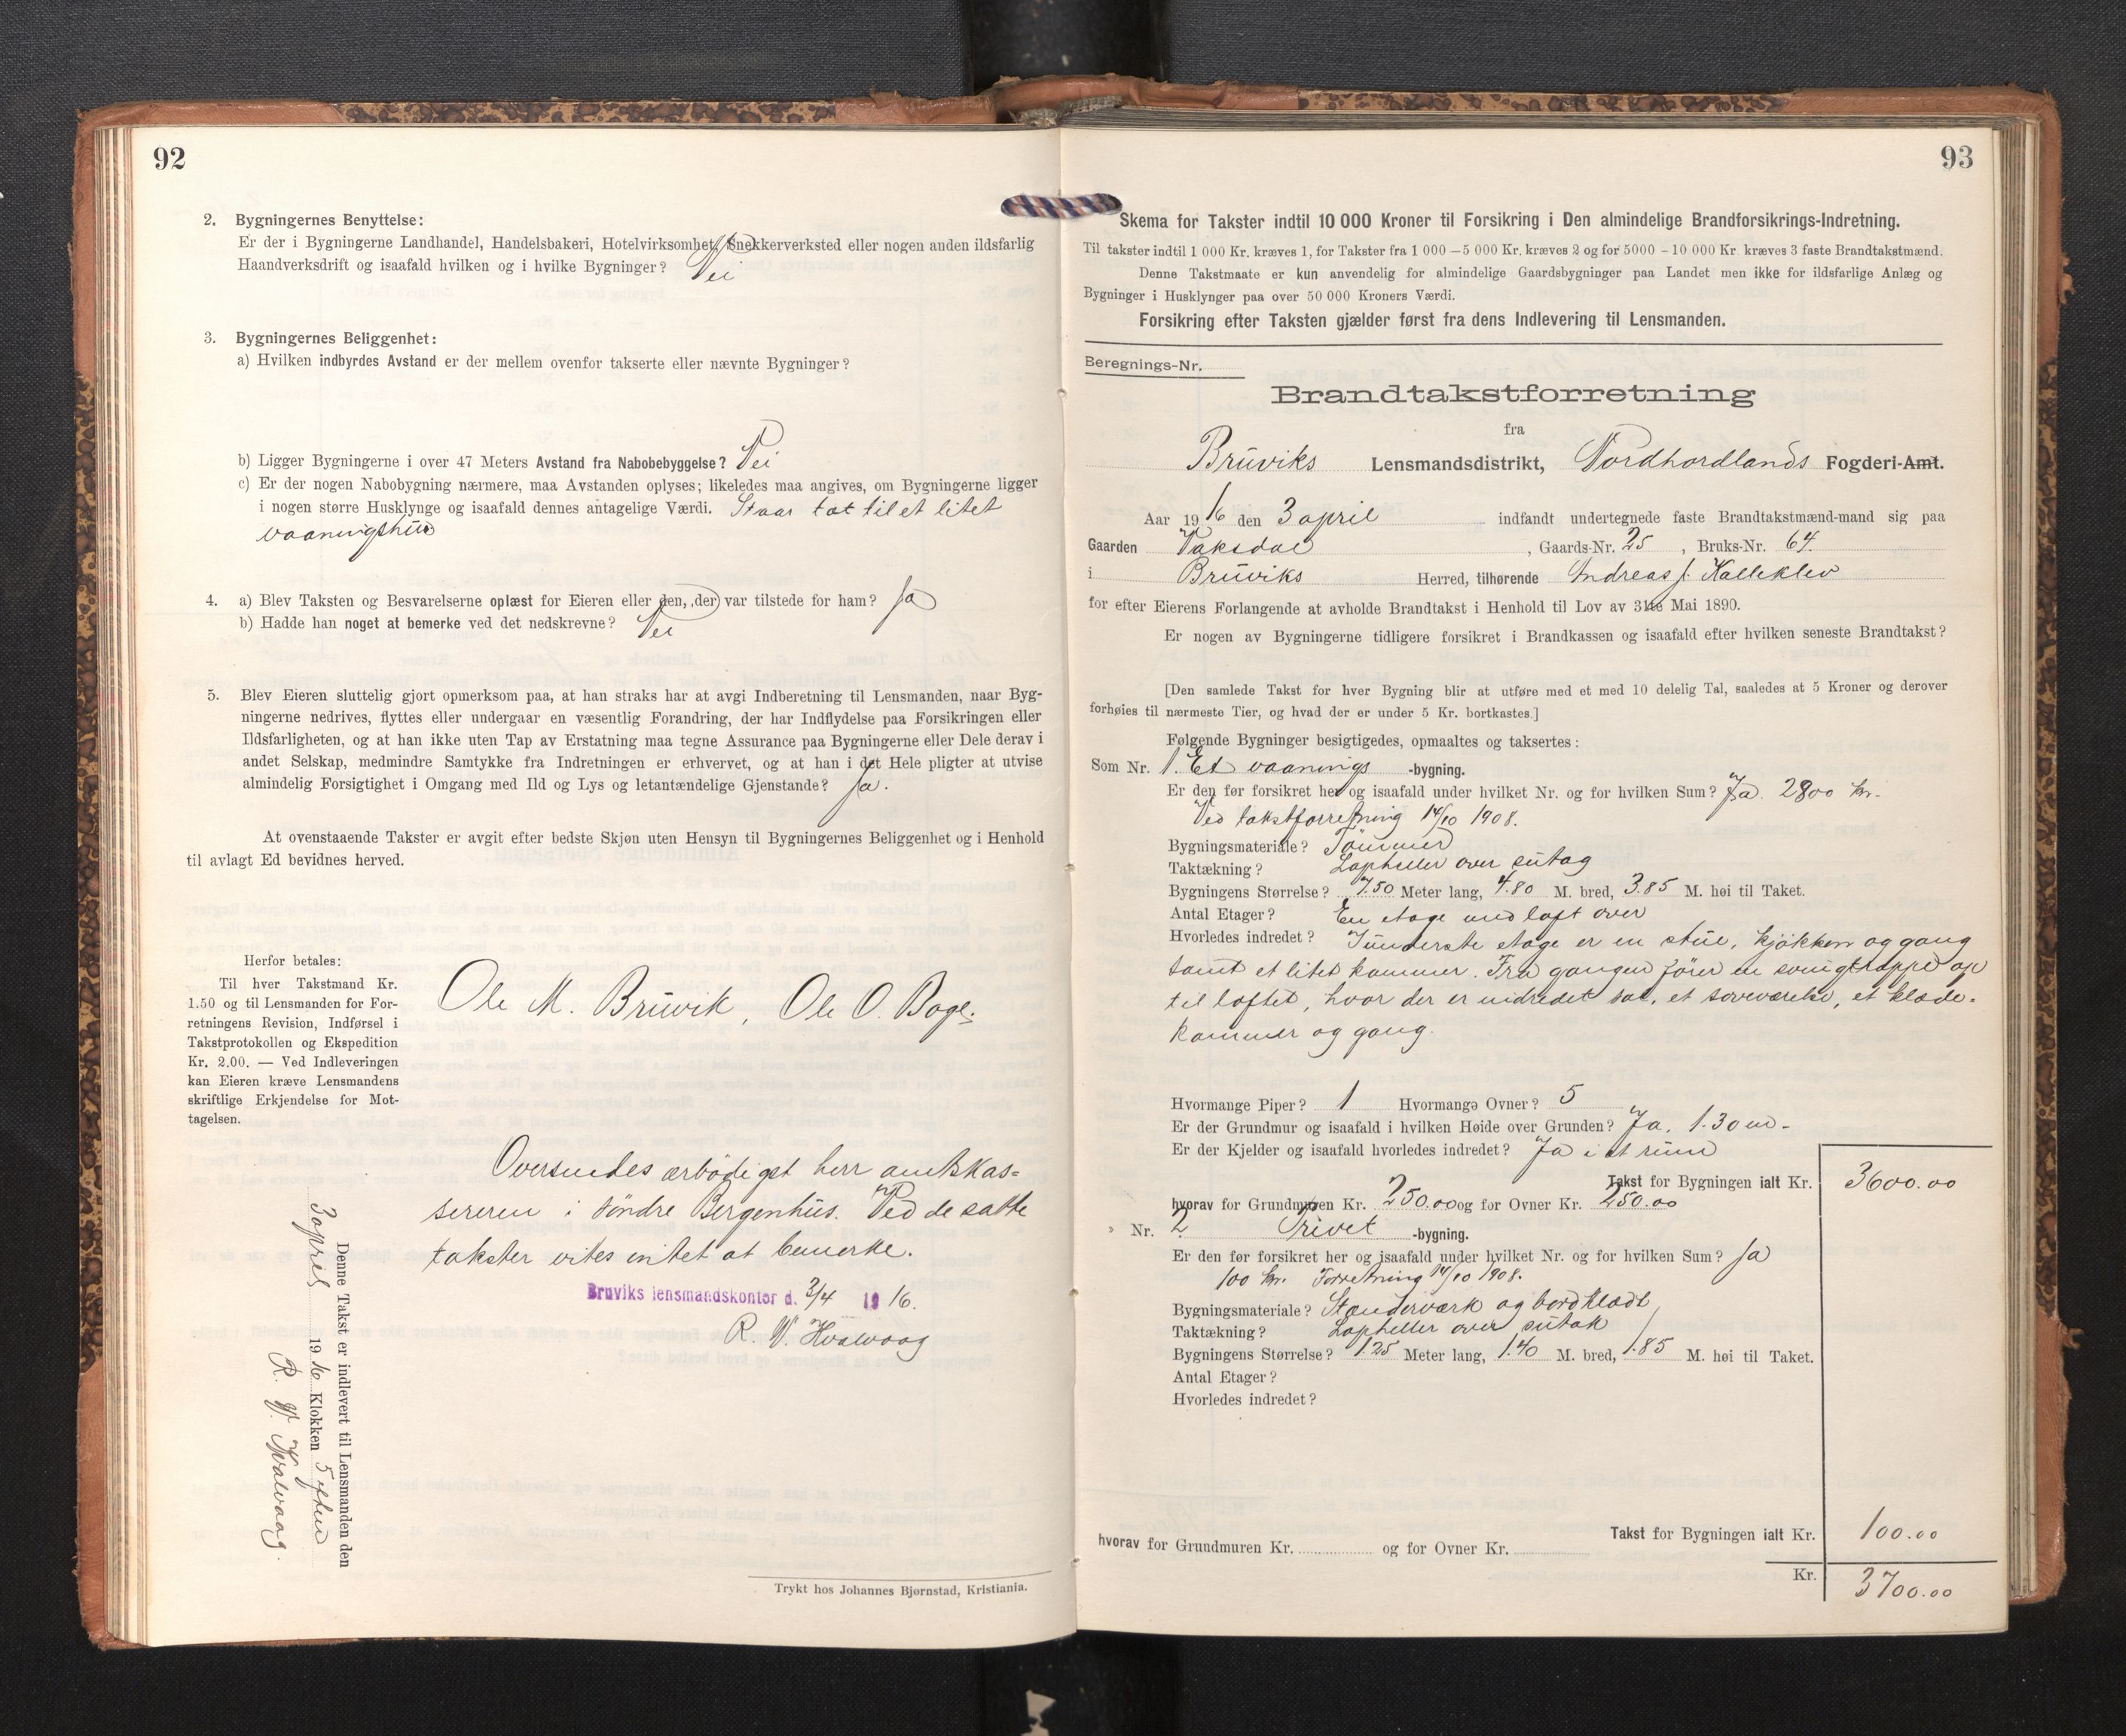 92
2. Bygningernes Benyttelse:
Er der i Bygningerne Landhandel, Handelsbakeri, Hotelvirksomhet, Snekkerverksted eller nogen anden ildsfarlig
Haandverksdrift og isaafald hvilken og i hvilke Bygninger? Nei
3. Bygningernes Beliggenhet:
a) Hvilken indbyrdes Avstand er der mellem ovenfor takserte eller nævnte Bygninger?
b) Ligger Bygningerne i over 47 Meters Avstand fra Nabobebyggelse? Nei
c) Er der nogen Nabobygning nærmere, maa Avstanden oplyses; likeledes maa angives, om Bygningerne ligger
i nogen større Husklynge og isaafald dennes antagelige Værdi. Staar tæt til et litet
vaaningshus
4. a) Blev Taksten og Besvarelserne oplæst for Eieren eller den, der var tilstede for ham? Ja
b) Hadde han noget at bemerke ved det nedskrevne? Nei
5. Blev Eieren sluttelig gjort opmerksom paa, at han straks har at avgi Indberetning til Lensmanden, naar Byg-
ningerne nedrives, flyttes eller undergaar en væsentlig Forandring, der har Indflydelse paa Forsikringen eller
Ildsfarligheten, og at han ikke uten Tap av Erstatning maa tegne Assurance paa Bygningerne eller Dele derav i
andet Selskap, medmindre Samtykke fra Indretningen er erhvervet, og at han i det Hele pligter at utvise
almindelig Forsigtighet i Omgang med Ild og Lys og letantændelige Gjenstande? Ja.
At ovenstaaende Takster er avgit efter bedste Skjøn uten Hensyn til Bygningernes Beliggenhet og i Henhold
til avlagt Ed bevidnes herved.
Herfor betales:
Til hver Takstmand Kr.
1.50 og til Lensmanden for For-
retningens Revision, Indførsel i
Takstprotokollen og Ekspedition
Kr. 2.00. — Ved Indleveringen
kan Eieren kræve Lensmandens
skriftlige Erkjendelse for Mot-
tagelsen.
Ole M. Bruvik, Ole O. Boge.
Oversendes ærbödigst herr amtskas=
sereren i söndre Bergenhus. Ved de satte
takster vites intet at bemerke.
Bruviks lensmandskontor d. 3/4 1916.
R. W. Hvalvaag
Denne Takst er indlevert til Lensmanden den
3 april 1916 Klokken 5 eftm
R. W. Hvalvaag.
Trykt hos Johannes Bjørnstad, Kristiania.
93
Skema for Takster indtil 10 000 Kroner til Forsikring i Den almindelige Brandforsikrings-Indretning.
Til takster indtil 1 000 Kr. kræves 1, for Takster fra 1 000 —5 000 Kr. kræves 2 og for 5000 – 10 000 Kr. kræves 3 faste Brandtakstmænd.
Denne Takstmaate er kun anvendelig for almindelige Gaardsbygninger paa Landet men ikke for ildsfarlige Anlæg og
Bygninger i Husklynger paa over 50 000 Kroners Værdi.
Forsikring efter Taksten gjælder først fra dens Indlevering til Lensmanden.
Beregnings-Nr.
Brandtakstforretning
fra
Bruviks Lensmandsdistrikt, Nordhordlands Fogderi-Amt.
Aar 1916 den 3 april indfandt undertegnede faste Brandtakstmænd-mand sig paa
Gaarden Vaksdal, Gaards-Nr. 25, Bruks-Nr. 64.
i Bruviks Herred, tilhørende Andreas J. Kalleklev
for efter Eierens Forlangende at avholde Brandtakst i Henhold til Lov av 31te Mai 1890.
Er nogen av Bygningerne tidligere forsikret i Brandkassen og isaafald efter hvilken seneste Brandtakst?
[Den samlede Takst for hver Bygning blir at utføre med et med 10 delelig Tal, saaledes at 5 Kroner og derover
forhøies til nærmeste Tier, og hvad der er under 5 Kr. bortkastes.]
Følgende Bygninger besigtigedes, opmaaltes og taksertes:
Som Nr. 1. Et vaanings -bygning.
Er den før forsikret her og isaafald under hvilket Nr. og for hvilken Sum? Ja. 2800 kr.
Ved takstforretning 14/10 1908.
Bygningsmateriale? Tömmer
Taktækning? Lapheller over sutag
Bygningens Størrelse? 7.50 Meter lang, 4.80 M. bred, 3.85 M. høi til Taket.
Antal Etager? En etage med loft over
Hvorledes indredet? I underste etage er en stue, kjökken og gang
samt et litet kammer. Fra gangen förer en svingtrappe op
til loftet, hvor der er indredet sal, et soveværelse, et klæde-
kammer og gang.
Hvormange Piper? 1 Hvormange Ovner? 5
Er der Grundmur og isaafald i hvilken Høide over Grunden? Ja, 1.30 m.
Er der Kjelder og isaafald hvorledes indredet? Ja i et rum
Takst for Bygningen ialt Kr. 3600.00
hvorav for Grundmuren Kr. 250.00 og for Ovner Kr. 250.00
» Nr. 2 Privet -bygning.
Er den før forsikret her og isaafald under hvilket Nr. og for hvilken Sum? Ja
100 kr. Forretning 14/10 1908.
Bygningsmateriale? Stenderværk og bordklædt
Taktækning? Lapheller over sutak
Bygningens Størrelse? 1.25 Meter lang, 1.40 M. bred, 1.85 M. høi til Taket.
Antal Etager?
Hvorledes indredet?
Takst for Bygningen ialt Kr. 100.00
hvorav for Grundmuren Kr. og for Ovner Kr.
Kr. 3700.00